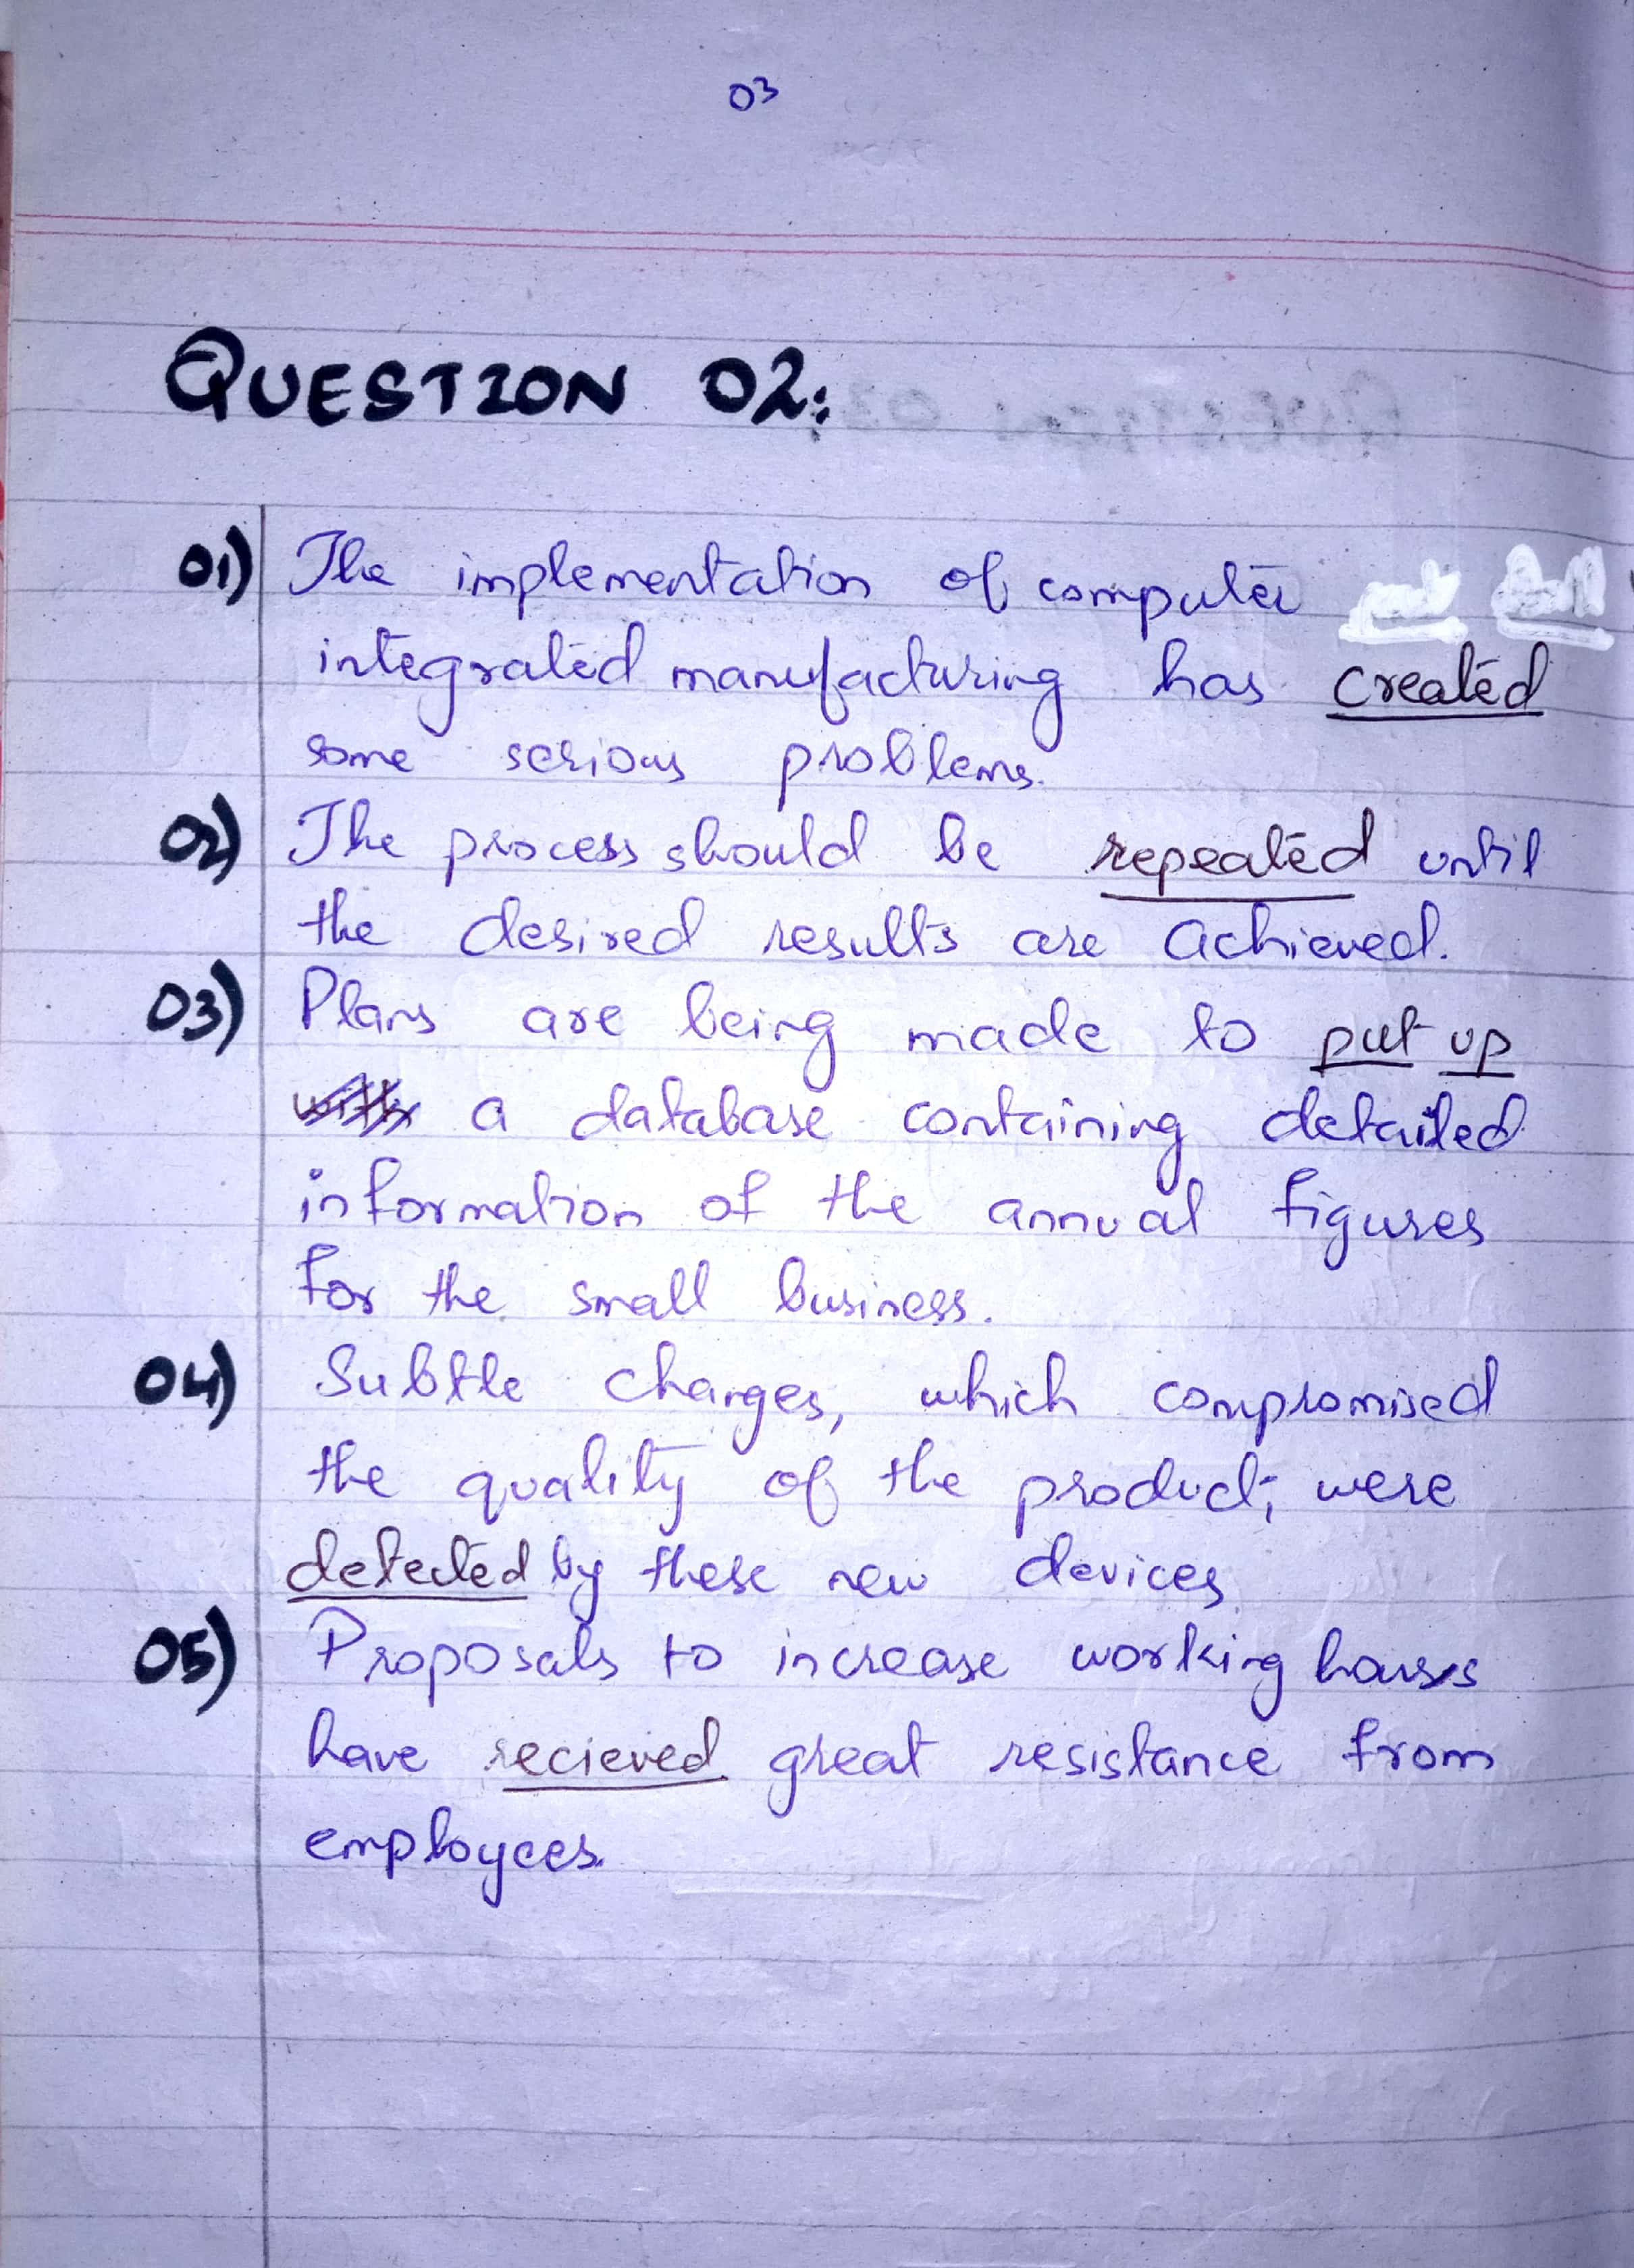 03
QUESTION 02:
01) The implementation of computer
integrated manufacturing has created
some serious problems.
02) The process should be repeated until
the desired results are achieved.
03) Plans are being made to put up
a database containing detailed
information of the annual figures
for the small business.
04) Subtle changes, which compromised
the quality of the product, were
detected by these new devices
05) Proposals to increase working hours
have recieved great resistance from
employees.